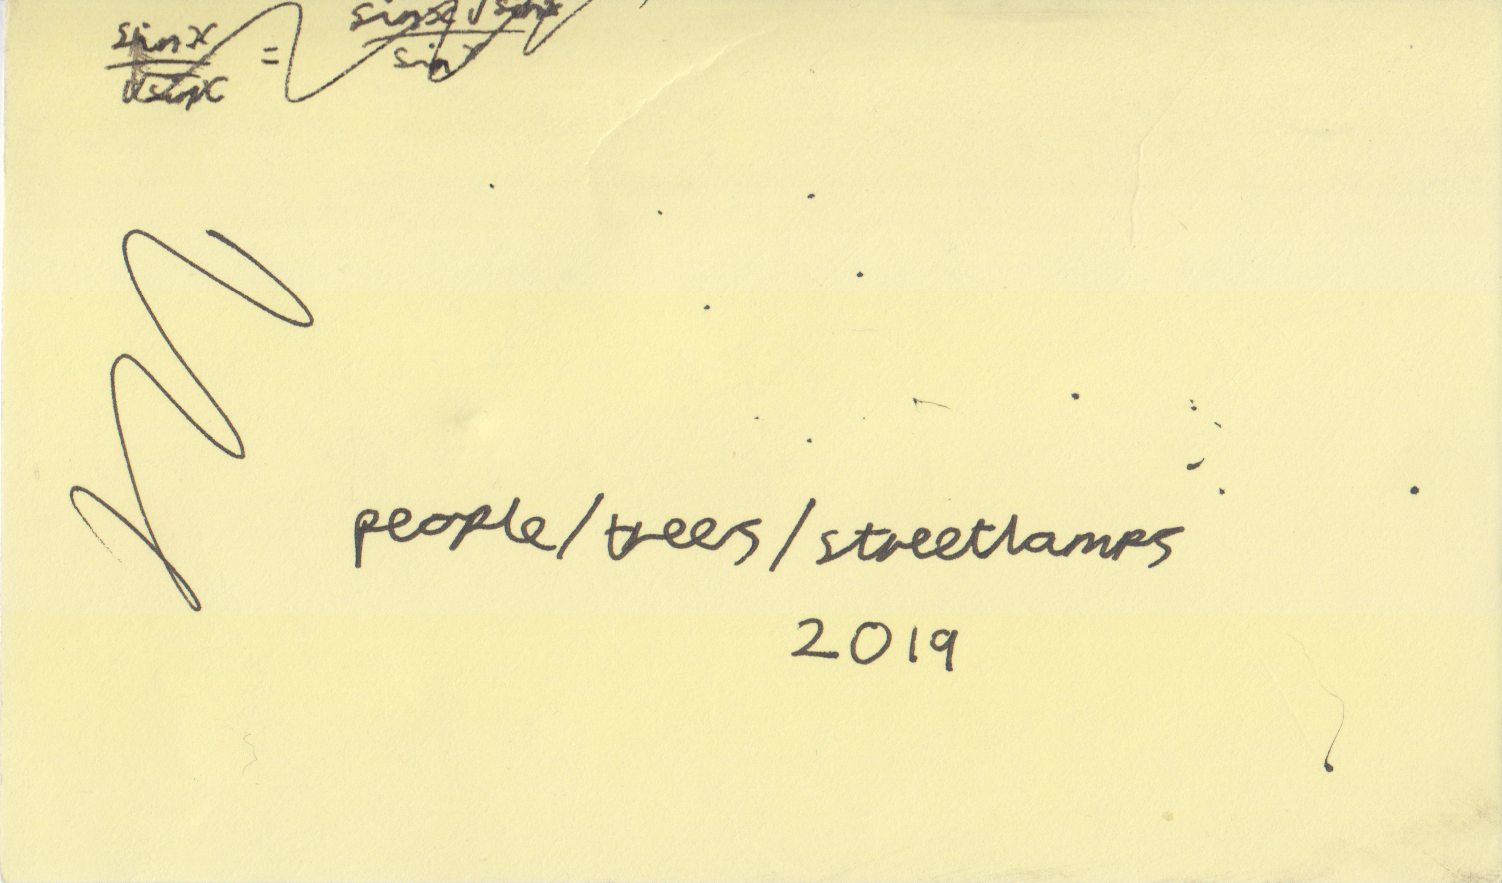 sinx / √sinx = sinx √sinx / sinx
people/trees/streetlamps
2019